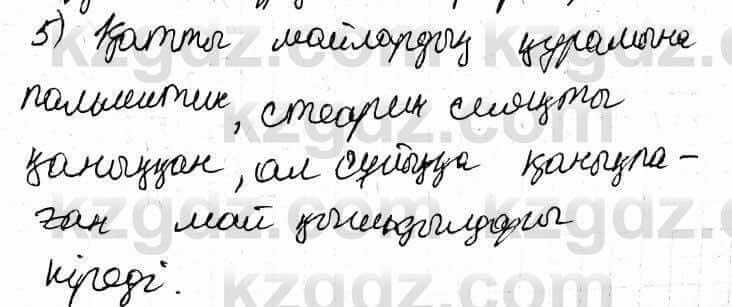 5) Қатты майлардың құрамына
пальмитин, стеарин сияқты
қаныққан, ал сұйыққа қанықпа-
ған май қышқылдары
кіреді.